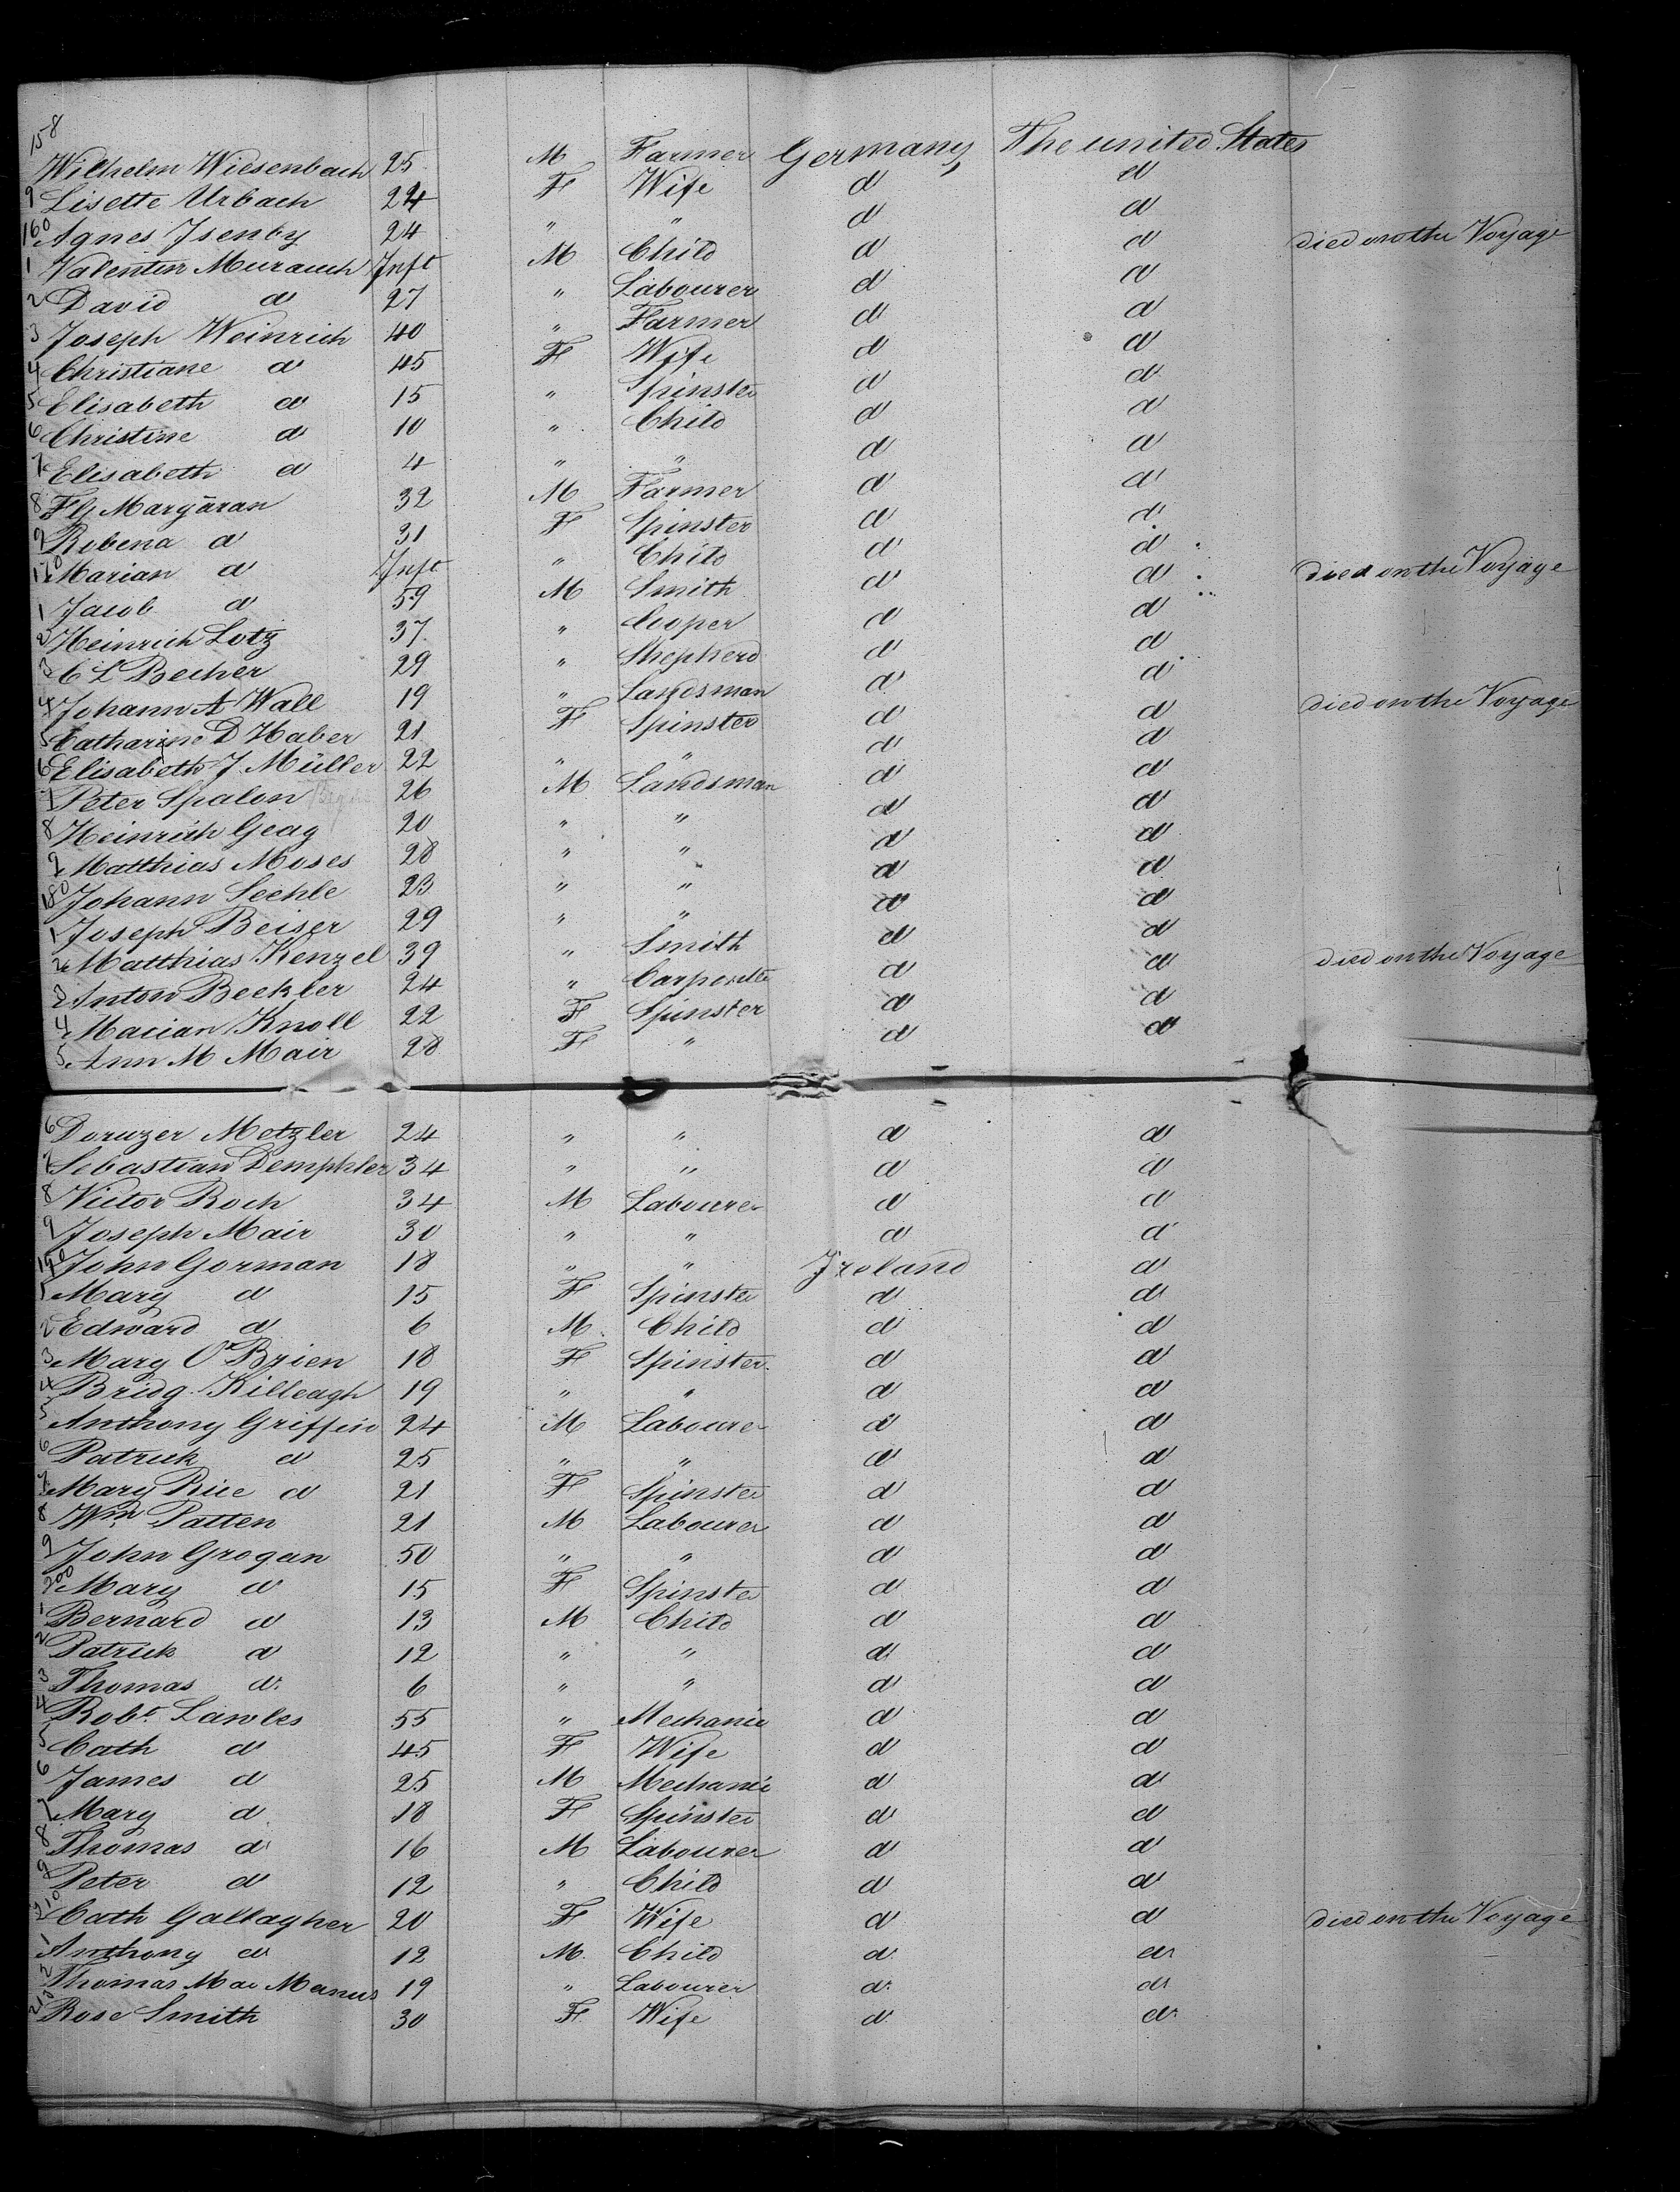 158 Wilhelm Wiesenbach 25 M Farmer Germany The united States
9 Lisette Urbach 24 F Wife d d
160 Agnes Isenby 24 " " d d
1 Valentin Murauch Inft M Child d d died on the Voyage
2 David d 27 " Labourer d d
3 Joseph Weinrich 40 " Farmer d d
4 Christiane d 45 F Wife d d
5 Elisabeth d 15 " Spinster d d
6 Christine d 10 " Child d d
7 Elisabeth d 4 " " d d
8 Fg Margaran 32 M Farmer d d
9 Robena d 31 F Spinster d d
170 Marian d Inft " Child d d died on the Voyage
1 Jacob d 59 M Smith d d
2 Heinrich Lotz 37 " Cooper d d
3 C L Becher 29 " Shepherd d d
4 Johann A Wall 19 " Landsman d d died on the Voyage
5 Catharine D Haber 21 F Spinster d d
6 Elisabeth J Müller 22 " " d d
7 Peter Spalon 26 M Landsman d d
8 Heinrich Geag 20 " " d d
9 Matthias Moses 28 " " d d
180 Johann Sechle 23 " " d d
1 Joseph Beiser 29 " " d d
2 Matthias Kenzel 39 " Smith d d died on the Voyage
3 Anton Beckler 24 " Carpenter d d
4 Macian Knoll 22 F Spinster d d
5 Ann M Mair 28 F " d d
6 Doruzer Metzler 24 " " d d
7 Sebastian Demphler 34 " " d d
8 Victor Roch 34 M Labourer d d
9 Joseph Mair 30 " " d d
190 John Gorman 18 " " Ireland d
1 Mary d 15 F Spinster d d
2 Edward d 6 M Child d d
3 Mary O'Brien 18 F Spinster d d
4 Bridg. Killeagh 19 " " d d
5 Anthony Griffin 24 M Labourer d d
6 Patrick d 25 " " d d
7 Mary Rice d 21 F Spinster d d
8 Wm Patten 21 M Labourer d d
9 John Grogan 50 " " d d
200 Mary d 15 F Spinster d d
1 Bernard d 13 M Child d d
2 Patrick d 12 " " d d
3 Thomas d. 6 " " d d
4 Robt. Lawles 55 " Mechanic d d
5 Cath d 45 F Wife d d
6 James d 25 M Mechanic d d
7 Mary d 18 F Spinster d d
8 Thomas d 16 M Labourer d d
9 Peter d 12 " Child d d
210 Cath Gallagher 20 F Wife d d died on the Voyage
1 Anthony d 12 M. Child d d
2 Thomas Mac Manus 19 " Labourer d. d
213 Rose Smith 30 F Wife d d